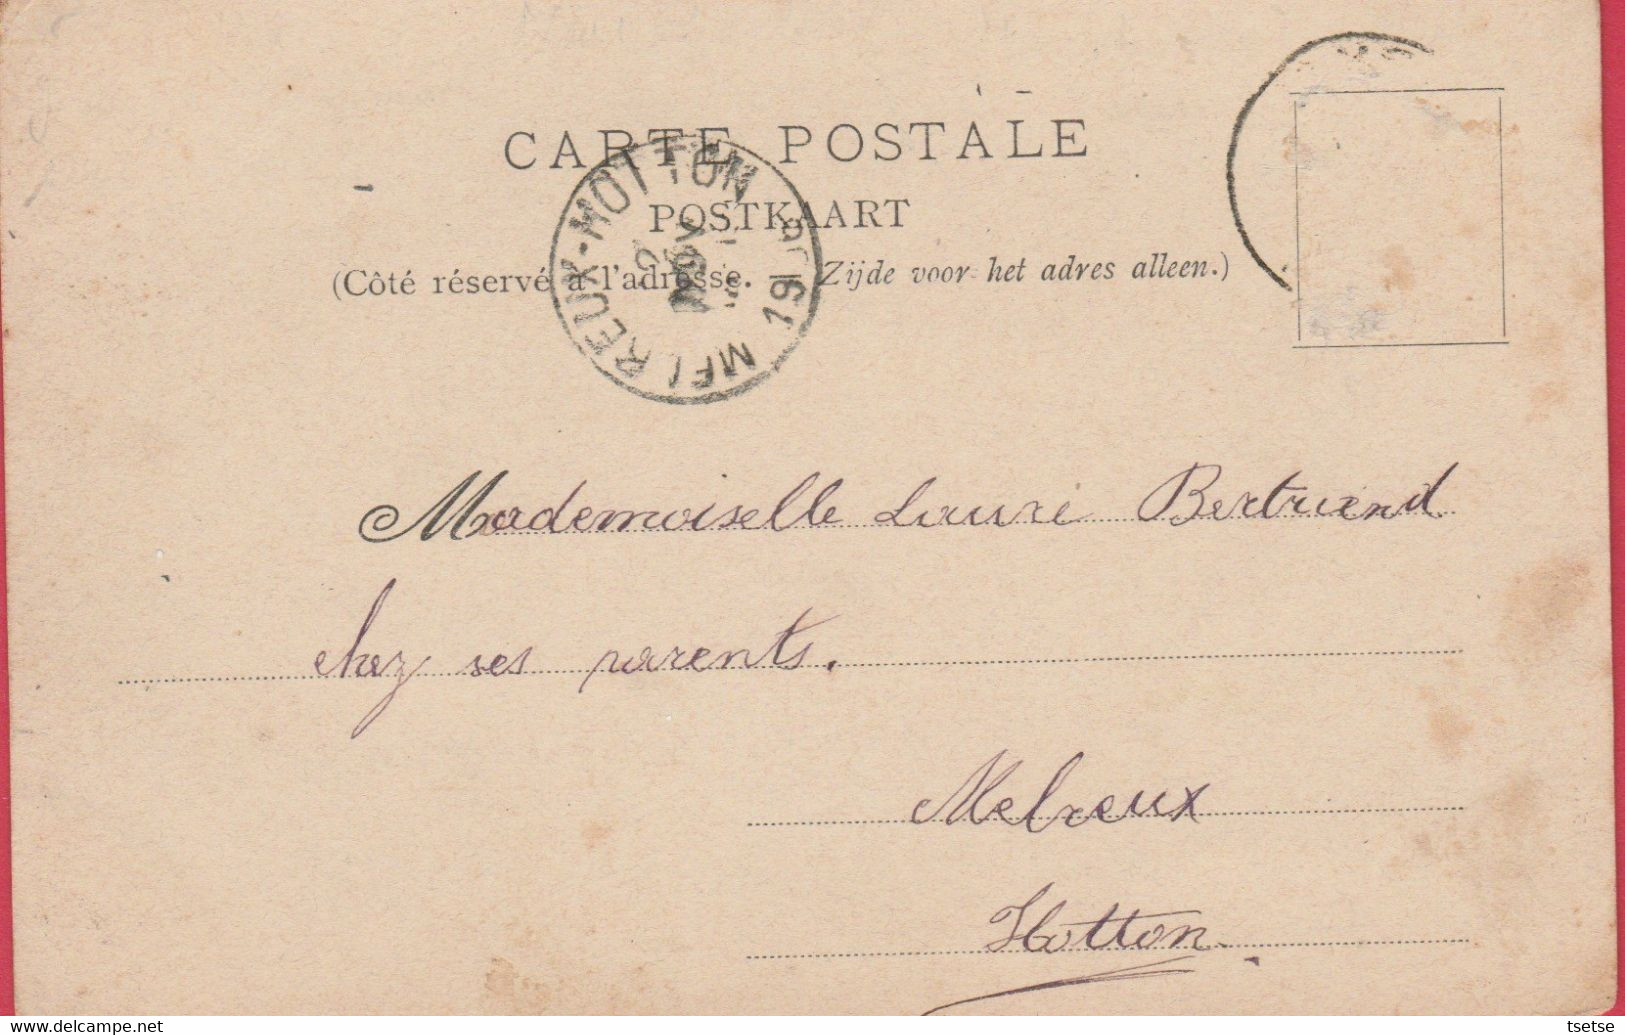 CARTE POSTALE
POSTKAART
(Côté réservé à l'adresse. Zijde voor het adres alleen.)
MELREUX-HOTTON
NOV
19
Mademoiselle Laure Bertrand
chez ses parents.
Melreux
Hotton.
tsetse